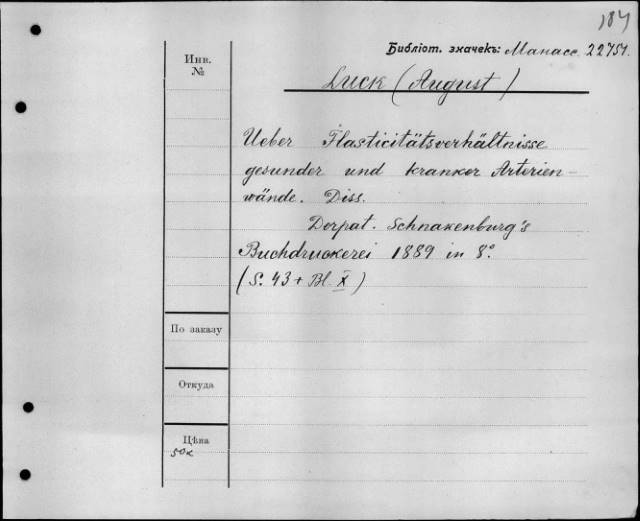 184
Библіот. значекъ: Манасс. 22751.
Инв.
№
Luck (August)
Ueber Elasticitätsverhältnisse
gesunder und kranker Arterien-
wände. Diss.
Dorpat. Schnakenburg's
Buchdruckerei 1889 in 8°.
(S. 43 + Bl. X)
По заказу
Откуда
Цѣна
50к